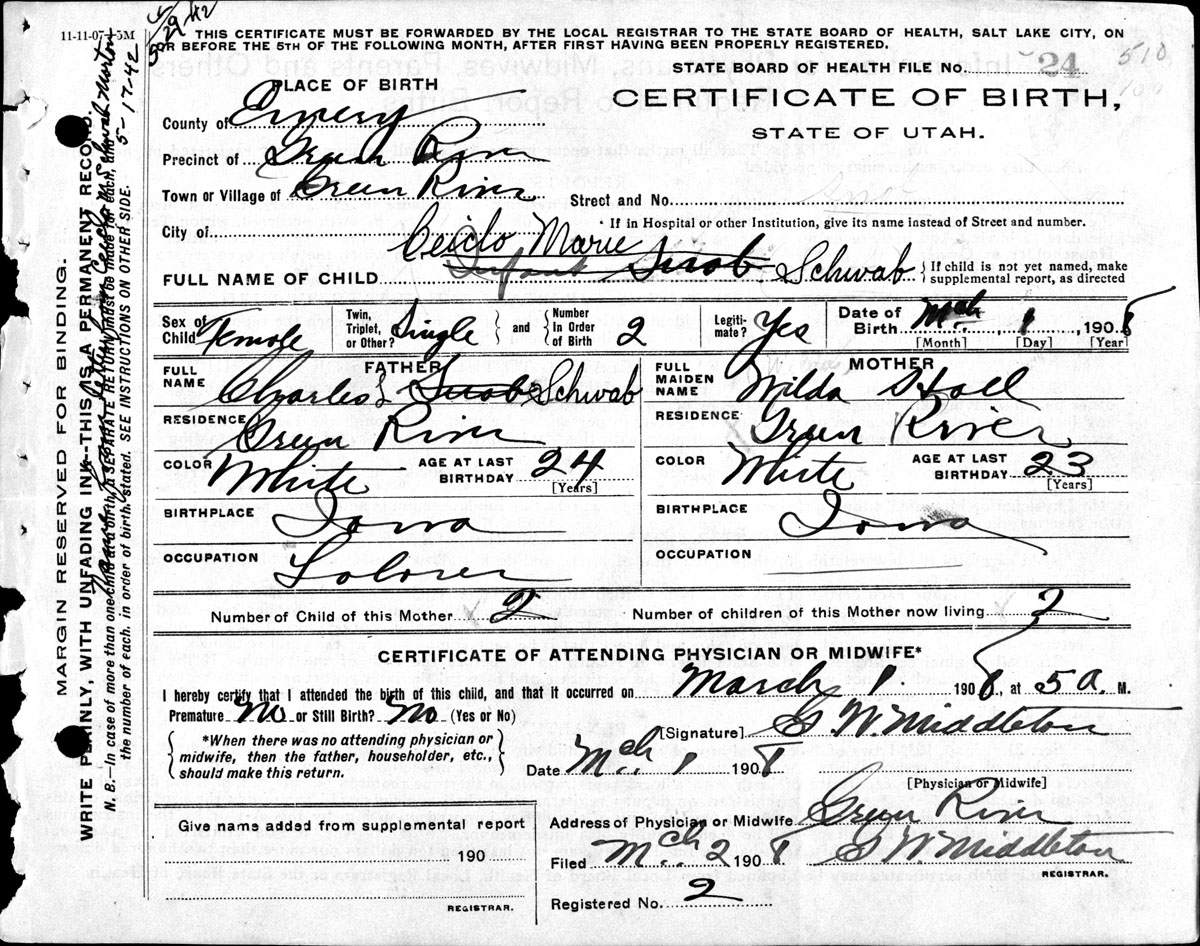 11-11-07—5M
5-29-42
THIS CERTIFICATE MUST BE FORWARDED BY THE LOCAL REGISTRAR TO THE STATE BOARD OF HEALTH, SALT LAKE CITY, ON
OR BEFORE THE 5TH OF THE FOLLOWING MONTH, AFTER FIRST HAVING BEEN PROPERLY REGISTERED.
STATE BOARD OF HEALTH FILE No. 24
510
PLACE OF BIRTH
CERTIFICATE OF BIRTH,
STATE OF UTAH.
County of Emery
Precinct of Green River
Town or Village of Green River
Street and No.
City of
* If in Hospital or other Institution, give its name instead of Street and number.
Marie
FULL NAME OF CHILD Infant Schwab
{ If child is not yet named, make
supplemental report, as directed
Sex of Child Female
Twin, Triplet, or Other? Single
and
Number In Order of Birth 2
Legitimate? Yes
Date of Birth Mch. 1, 1908
[Month] [Day] [Year]
FATHER
FULL NAME Charles L Schwab
RESIDENCE Green River
COLOR White AGE AT LAST BIRTHDAY 24
[Years]
BIRTHPLACE Iowa
OCCUPATION Laborer
MOTHER
FULL MAIDEN NAME Wilda Hall
RESIDENCE Green River
COLOR White AGE AT LAST BIRTHDAY 23
[Years]
BIRTHPLACE Iowa
OCCUPATION
Number of Child of this Mother 2 Number of children of this Mother now living 2
CERTIFICATE OF ATTENDING PHYSICIAN OR MIDWIFE*
I hereby certify that I attended the birth of this child, and that it occurred on March 1 1908, at 5 a. M.
Premature No or Still Birth? No (Yes or No)
[Signature] G W. Middleton
{ *When there was no attending physician or
midwife, then the father, householder, etc.,
should make this return. }
Date Mch. 1 1908
[Physician or Midwife]
Give name added from supplemental report
190
REGISTRAR.
Address of Physician or Midwife Green River
Filed Mch. 2 1908 G W. Middleton
REGISTRAR.
Registered No. 2
MARGIN RESERVED FOR BINDING.
WRITE PLAINLY, WITH UNFADING INK—THIS IS A PERMANENT RECORD.
N. B.—In case of more than one child at a birth, a SEPARATE RETURN must be made for each, and
the number of each, in order of birth, stated. SEE INSTRUCTIONS ON OTHER SIDE.
5-17-42